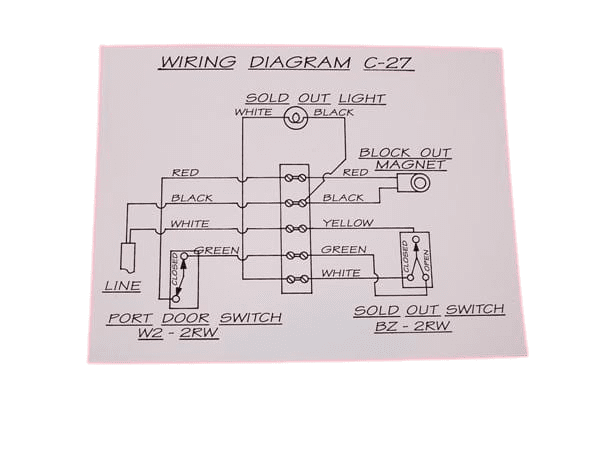 WIRING DIAGRAM C-27
SOLD OUT LIGHT
WHITE BLACK
BLOCK OUT
MAGNET
RED RED
BLACK BLACK
WHITE YELLOW
GREEN GREEN
CLOSED
CLOSED
OPEN
WHITE
LINE
PORT DOOR SWITCH
W2 - 2RW
SOLD OUT SWITCH
BZ - 2RW